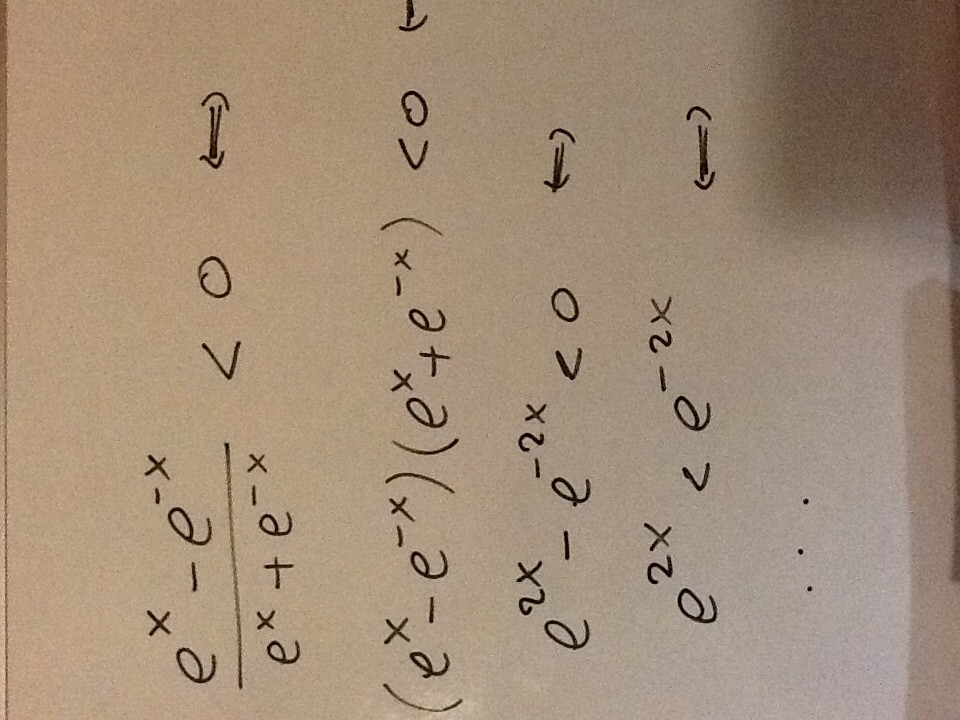 (e^x - e^-x)/(e^x + e^-x) < 0 ⟺
(e^x - e^-x)(e^x + e^-x) < 0
e^2x - e^-2x < 0 ⟺
e^2x < e^-2x ⟺
...